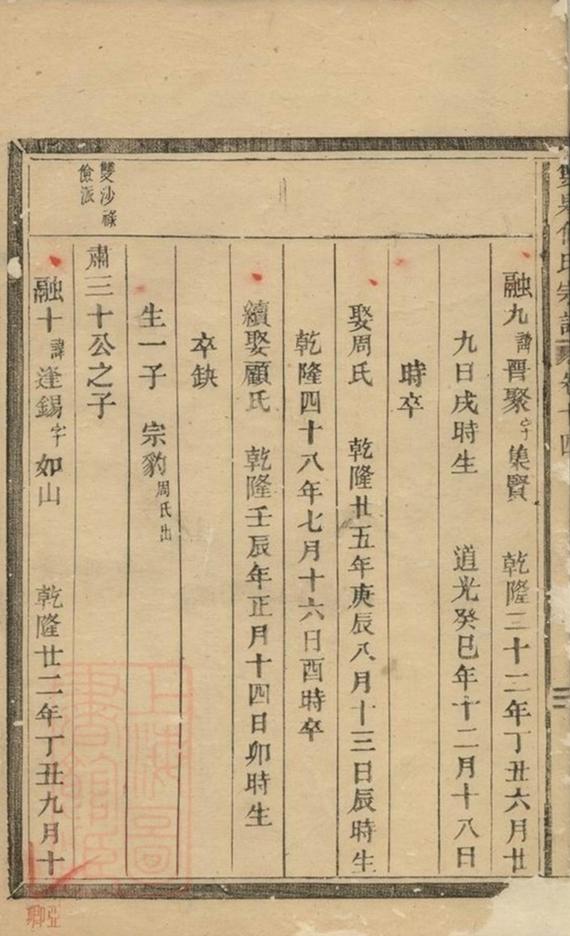 氏宗譜 卷十四
融九諱晉聚字集賢 乾隆二十二年丁丑六月廿
九日戌時生 道光癸巳年十二月十八日
時卒
娶周氏 乾隆廿五年庚辰八月十三日辰時生
乾隆四十八年七月十六日酉時卒
續娶顧氏 乾隆壬辰年正月十四日卯時生
卒缺
生一子 宗豹周氏出
雙沙祿
儉派
肅三十公之子
融十諱逢錫字如山 乾隆廿二年丁丑九月十
上海圖書館藏